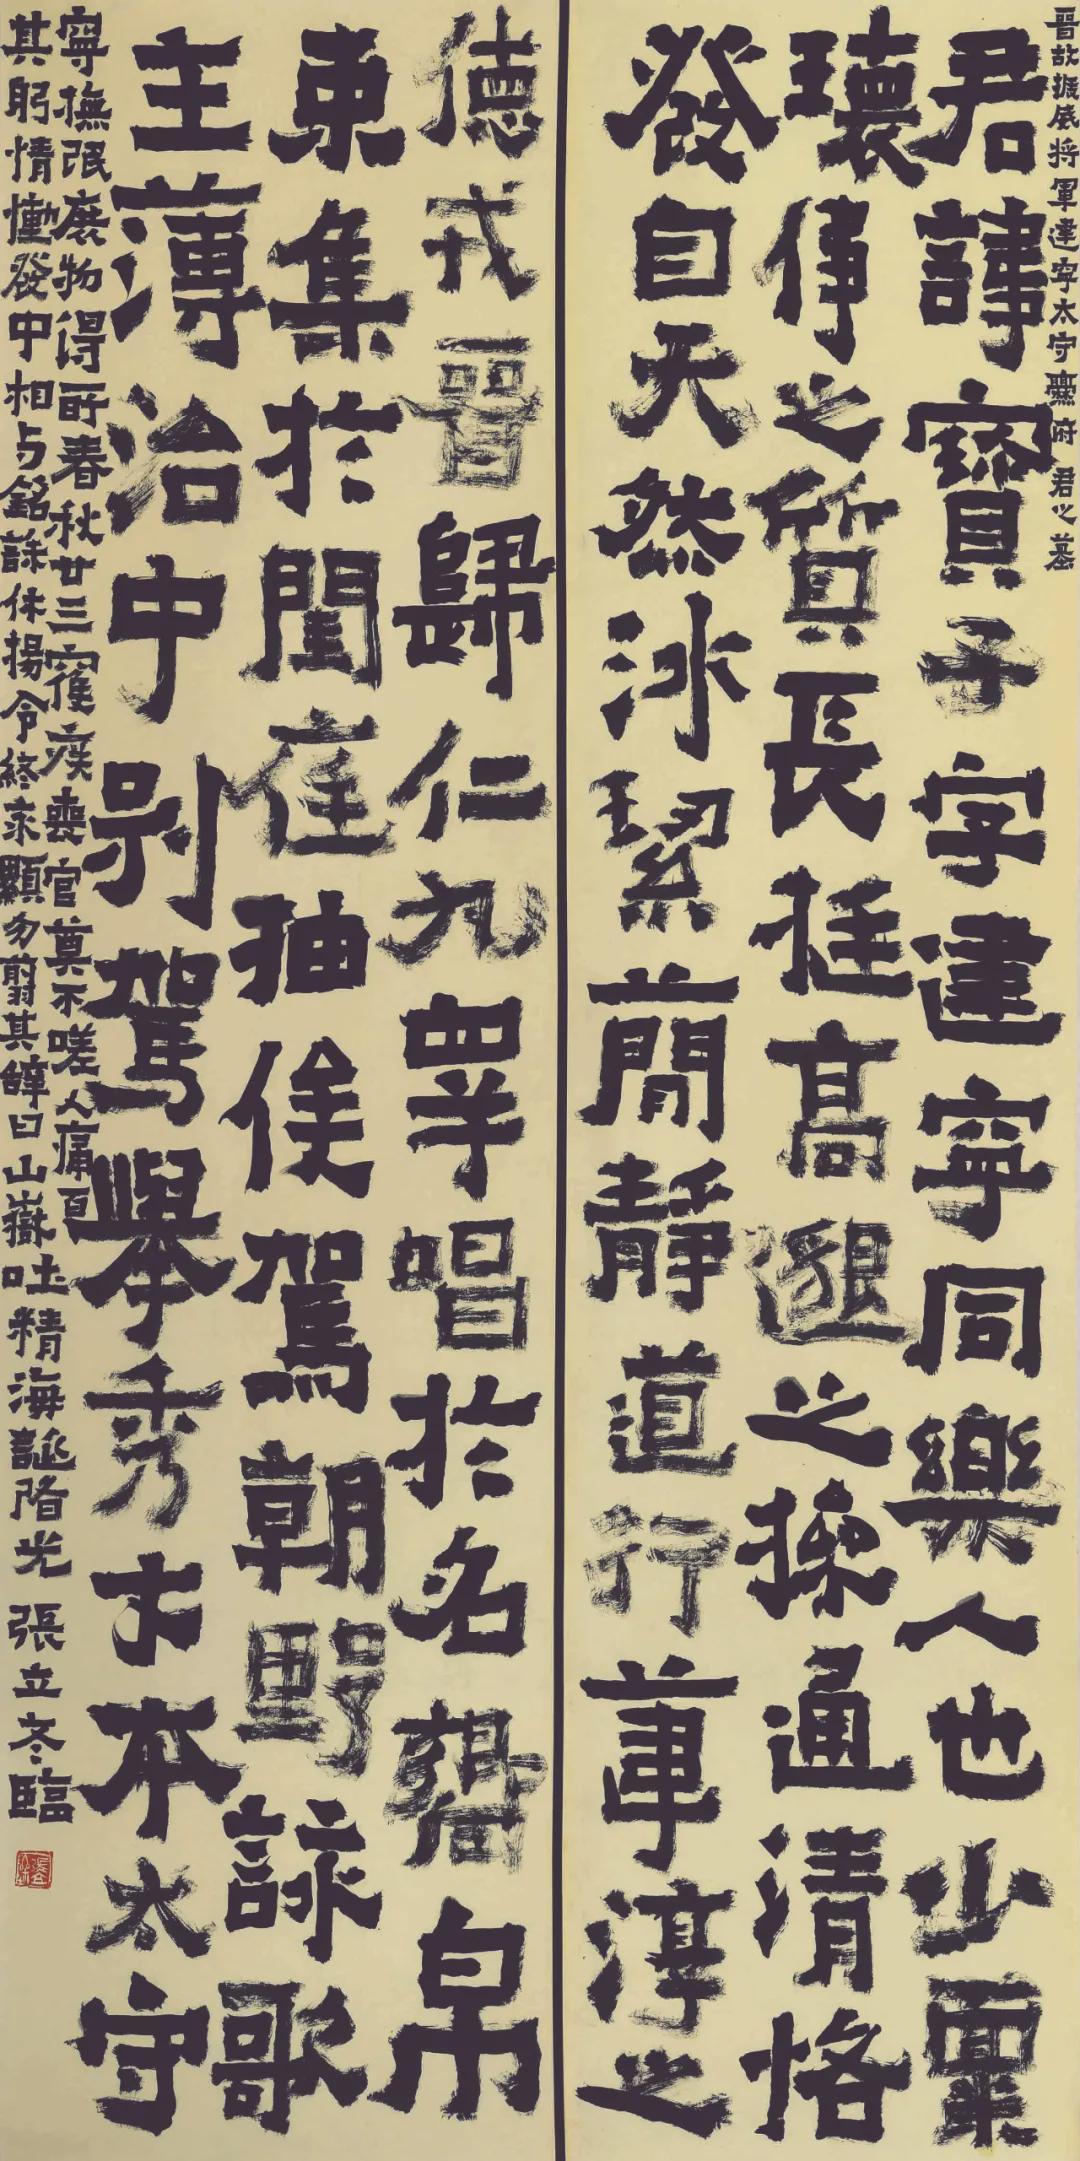 晉故振威將軍建寧太守爨府君之墓
君諱寶子字建寧同樂人也少稟
瓌偉之質長挺高邈之操通清恪
發自天然冰絜簡靜道行葦淳之
德戎晉歸仁九皋唱於名嚮帛
束集於閨庭抽俟駕朝野詠歌
主薄治中別駕舉秀才本太守
寧撫氓庶物得所春秋廿三寢疾喪官莫不嗟人痛百
其躬情慟發中相与銘誄休揚令終永顯勿翦其辭曰山嶽吐精海誕陼光 張立冬臨